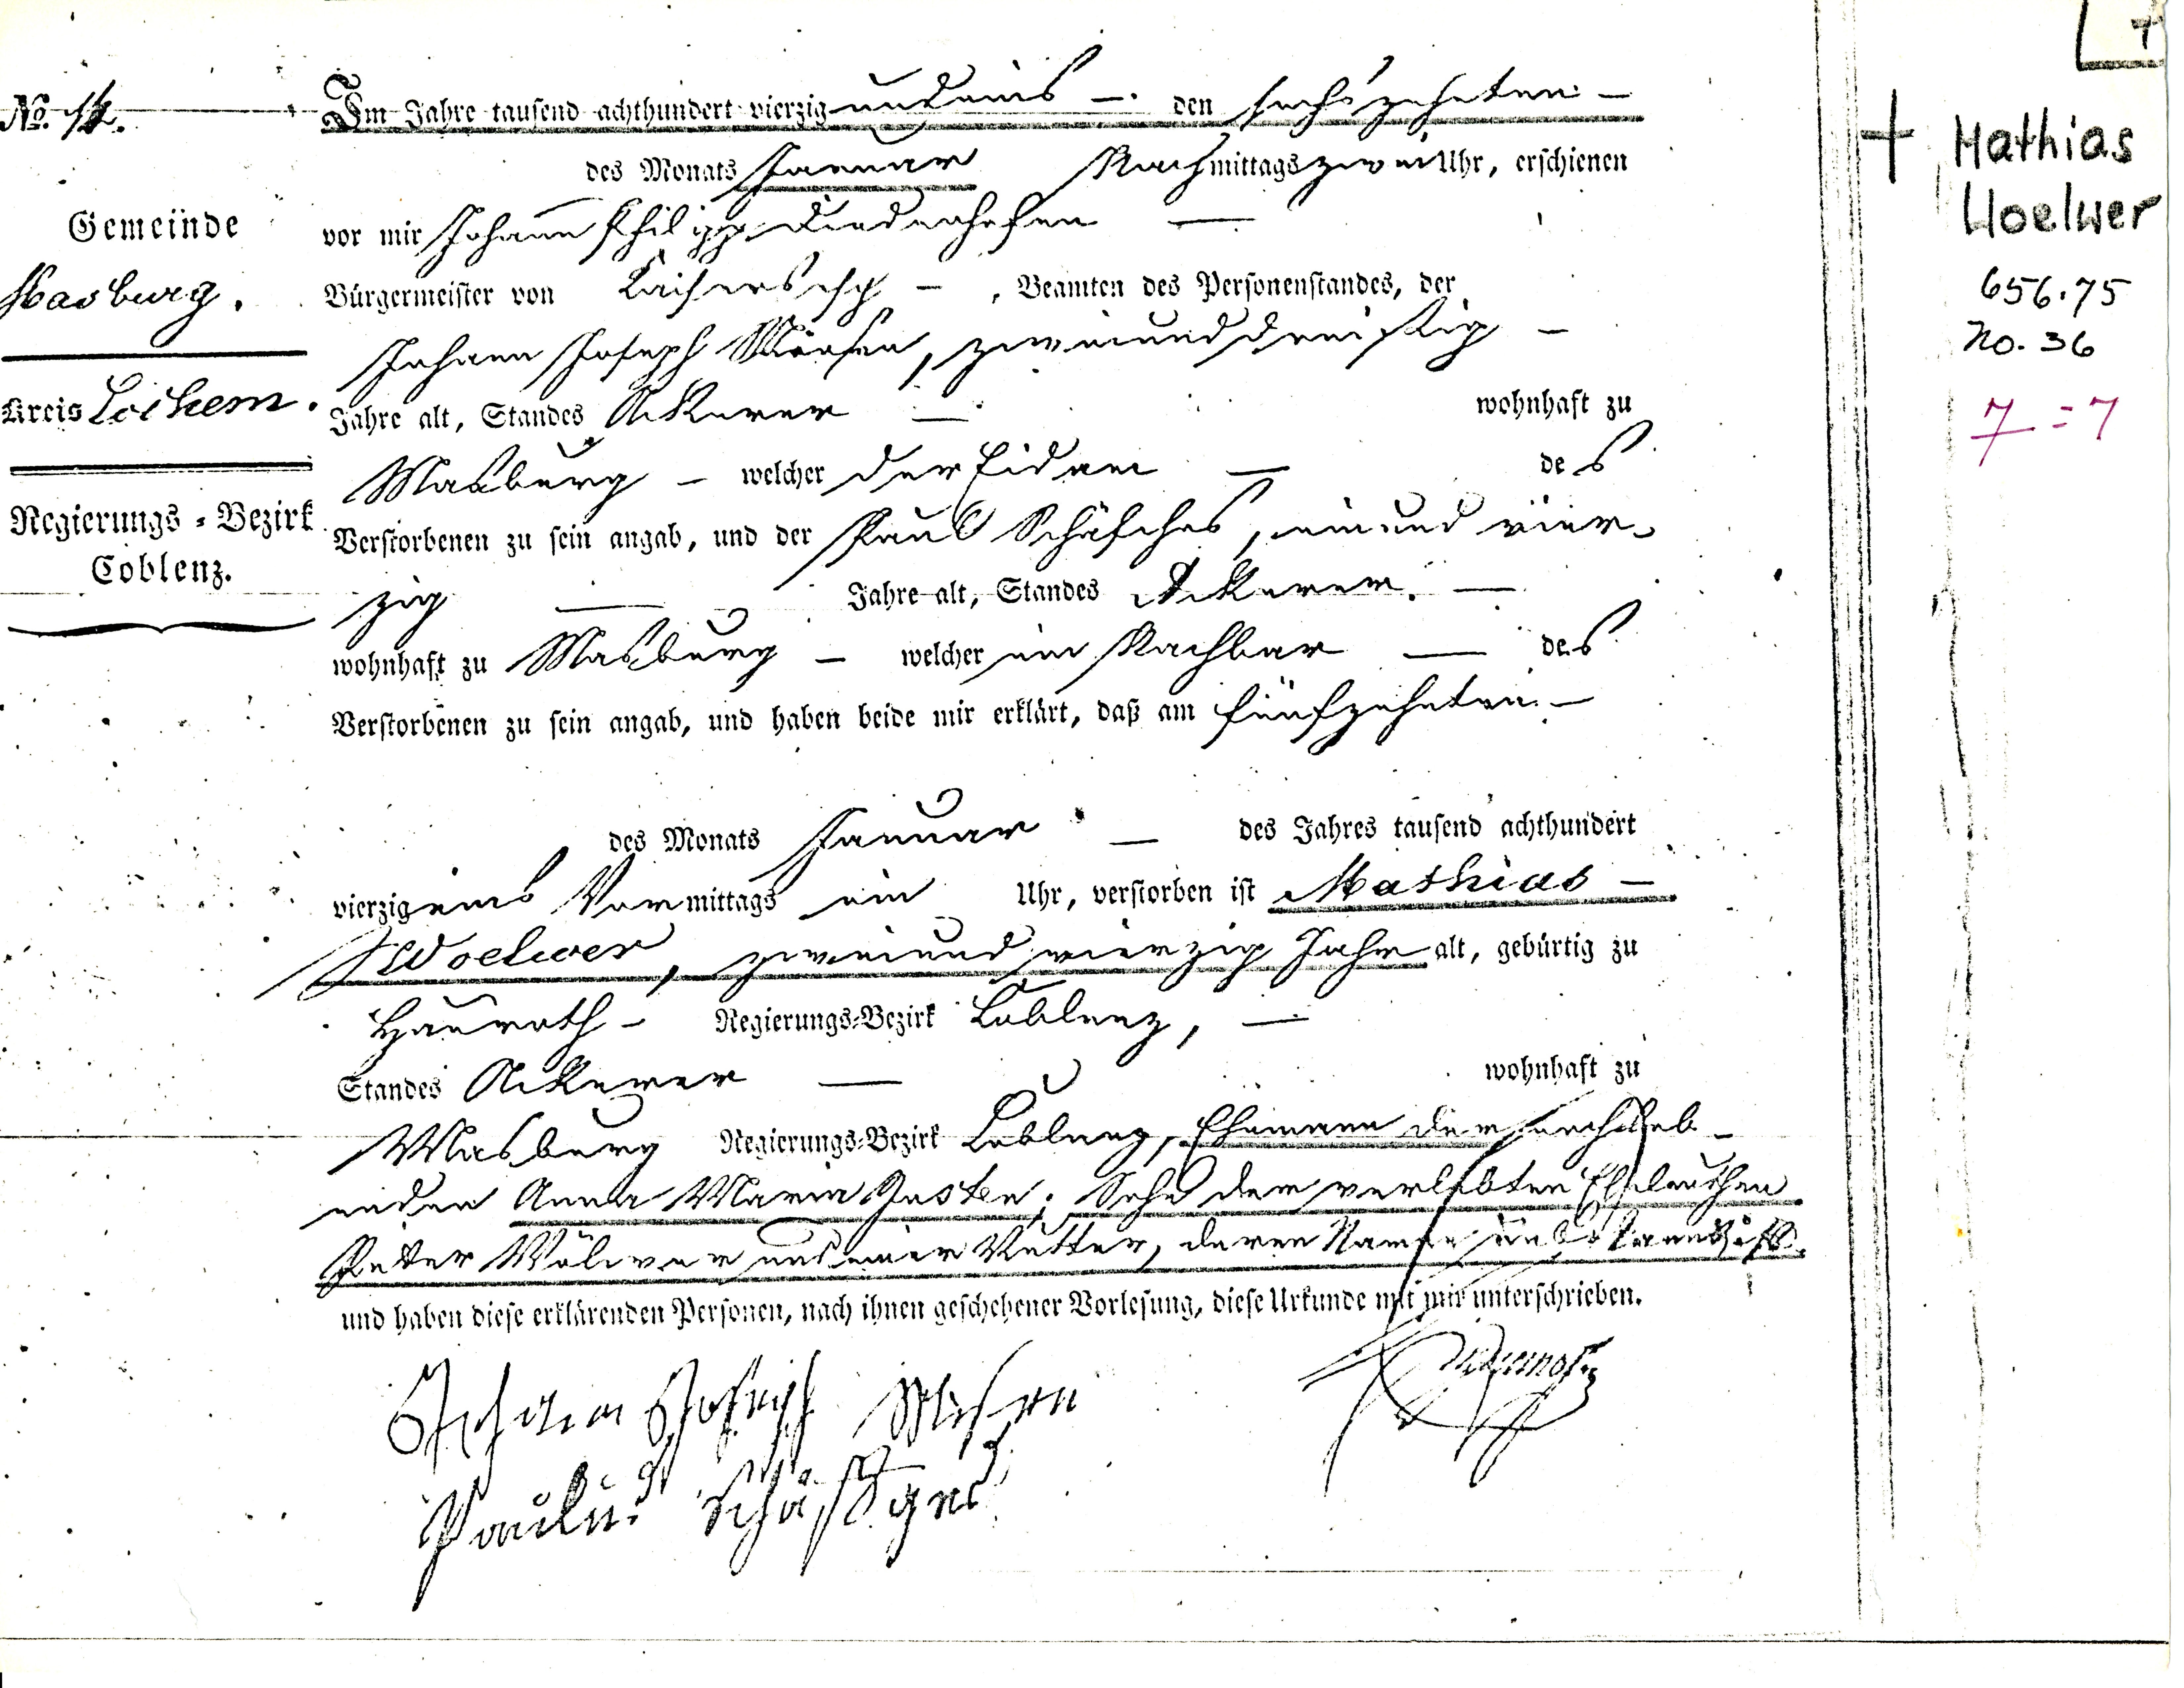 No. 14.
Gemeinde
Masburg.
Kreis Cochem.
Regierungs-Bezirk
Coblenz.
Im Jahre tausend achthundert vierzig und eins —. den sechszehnten —
des Monats Januar Nachmittags zwei Uhr, erschienen
vor mir Johann Philipp Diedenhofen —
Bürgermeister von Kaisersesch — , Beamten des Personenstandes, der
Johann Joseph zweiunddreißig —
Jahre alt, Standes Ackerer — wohnhaft zu
Masburg — welcher der Eidam — des
Verstorbenen zu sein angab, und der Paul Schäfches, einund vier-
zig — Jahre alt, Standes Ackerer. —
wohnhaft zu Masburg — welcher ein Nachbar — des
Verstorbenen zu sein angab, und haben beide mir erklärt, daß am fünfzehnten —
des Monats Januar — des Jahres tausend achthundert
vierzig eins Vormittags ein Uhr, verstorben ist Mathias —
Woelwer, zweiund vierzig Jahr alt, gebürtig zu
Hauroth — Regierungs-Bezirk Coblenz, —
Standes Ackerer — wohnhaft zu
Masburg Regierungs-Bezirk Coblenz, Ehemann der
Anna Maria Justen. Sohn der verlebten Eheleuthen
Peter Wölwer und einer Mutter, deren Name unbekannt ist.
und haben diese erklärenden Personen, nach ihnen geschehener Vorlesung, diese Urkunde mit mir unterschrieben.
Johann Joseph
Paulus Schäfges
+ Mathias
Woelwer
656.75
No. 36
7 = 7